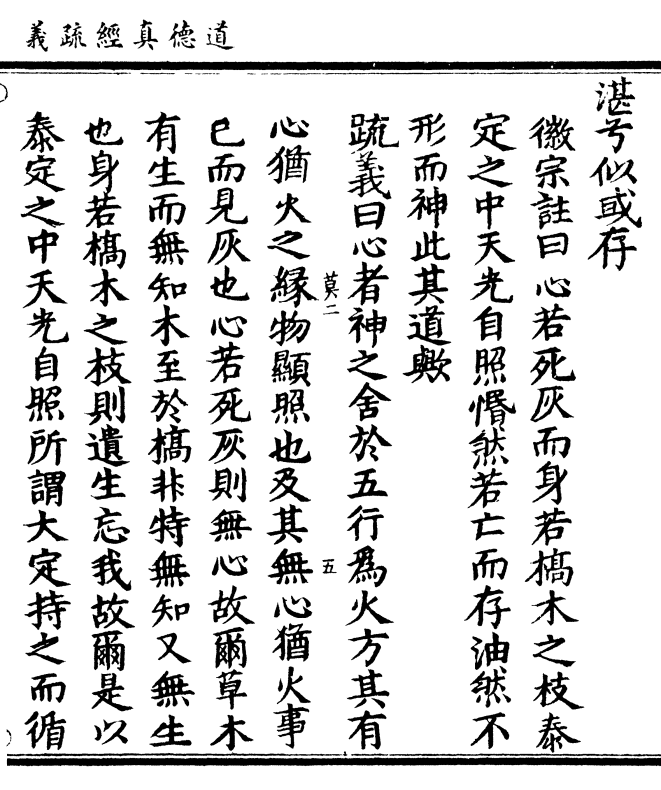 道德真經疏義
湛兮似或存
徽宗註曰心若死灰而身若槁木之枝泰
定之中天光自照惛然若亡而存油然不
形而神此其道歟
疏義曰心者神之舍於五行爲火方其有
莫二
五
心猶火之緣物顯照也及其無心猶火事
已而見灰也心若死灰則無心故爾草木
有生而無知木至於槁非特無知又無生
也身若槁木之枝則遺生忘我故爾是以
泰定之中天光自照所謂大定持之而循